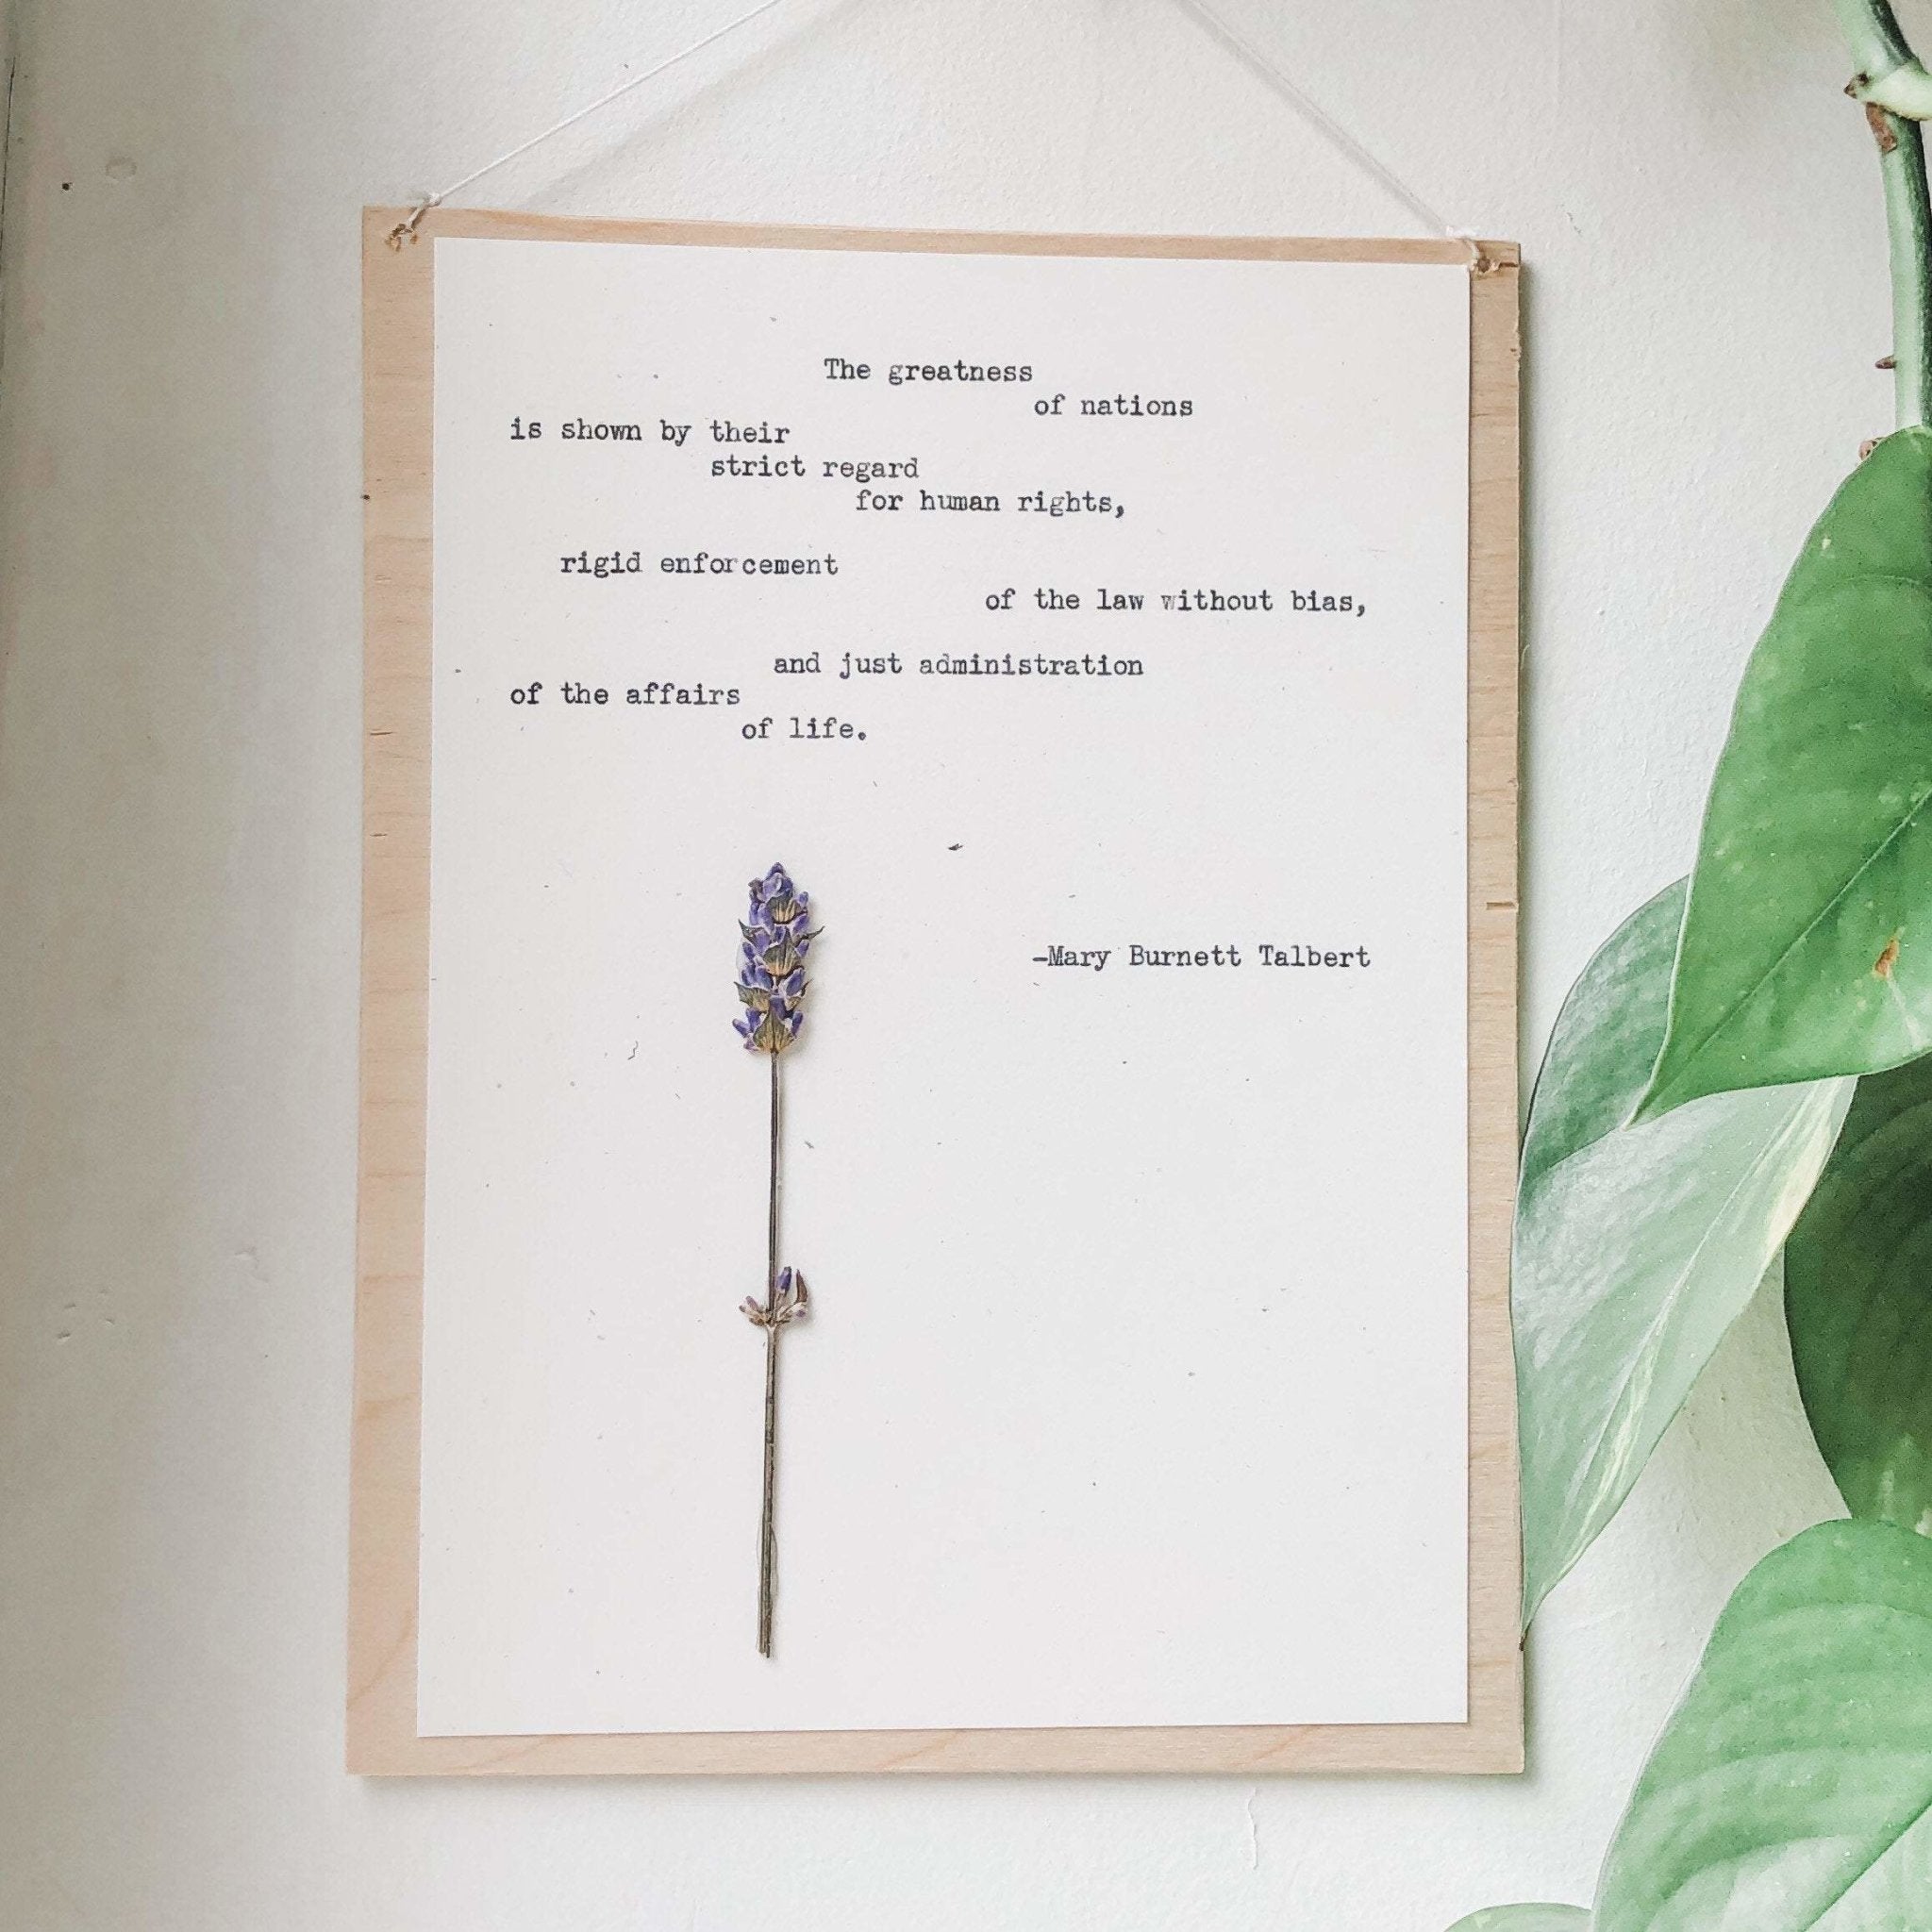 The greatness
of nations
is shown by their
strict regard
for human rights,
rigid enforcement
of the law without bias,
and just administration
of the affairs
of life.
-Mary Burnett Talbert